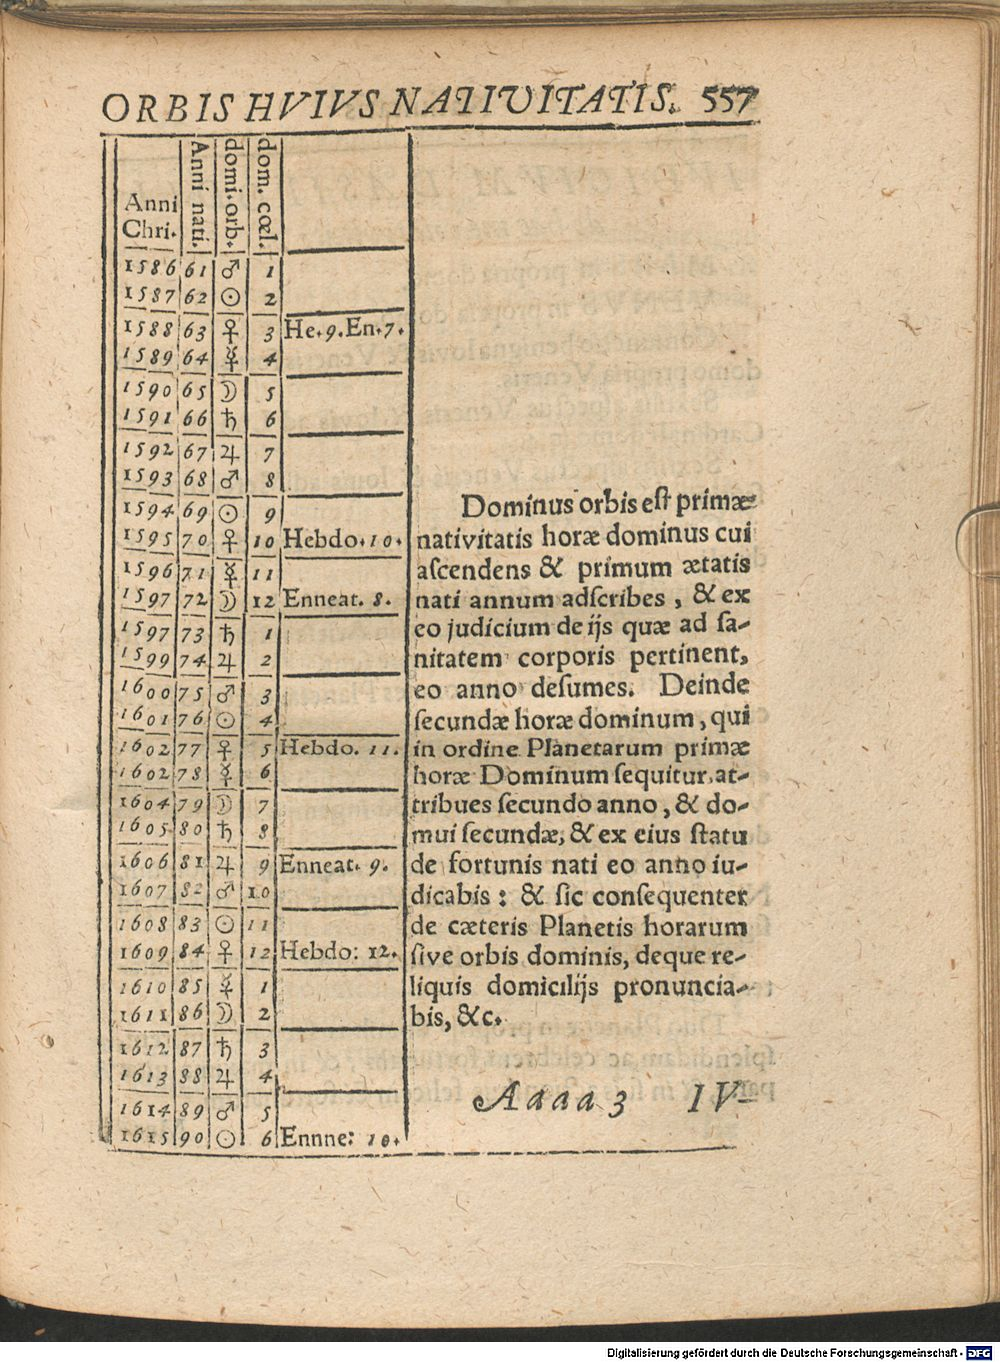 ORBIS HVIVS NAIIVITATIS. 557
Anni Chri. Anni nati. domi. orb. dom. cœl.
1586 61 ♂ 1
1587 62 ☉ 2
1588 63 ♀ 3 He. 9. En. 7.
1589 64 ☿ 4
1590 65 ☽ 5
1591 66 ♄ 6
1592 67 ♃ 7
1593 68 ♂ 8
1594 69 ☉ 9
1595 70 ♀ 10 Hebdo. 10.
1596 71 ☿ 11
1597 72 ☽ 12 Enneat. 8.
1597 73 ♄ 1
1599 74 ♃ 2
1600 75 ♂ 3
1601 76 ☉ 4
1602 77 ♀ 5 Hebdo. 11.
1602 78 ☿ 6
1604 79 ☽ 7
1605 80 ♄ 8
1606 81 ♃ 9 Enneat. 9.
1607 82 ♂ 10
1608 83 ☉ 11
1609 84 ♀ 12 Hebdo: 12.
1610 85 ☿ 1
1611 86 ☽ 2
1612 87 ♄ 3
1613 88 ♃ 4
1614 89 ♂ 5
1615 90 ☉ 6 Ennne: 10.
Dominus orbis est primæ
nativitatis horæ dominus cui
ascendens & primum ætatis
nati annum adscribes, & ex
eo judicium de ijs quæ ad sa-
nitatem corporis pertinent,
eo anno desumes. Deinde
secundæ horæ dominum, qui
in ordine Planetarum primæ
horæ Dominum sequitur, at-
tribues secundo anno, & do-
mui secundæ, & ex eius statu
de fortunis nati eo anno iu-
dicabis: & sic consequenter
de cæteris Planetis horarum
sive orbis dominis, deque re-
liquis domicilijs pronuncia-
bis, &c.
Aaaa 3 IV-
Digitalisierung gefördert durch die Deutsche Forschungsgemeinschaft - DFG